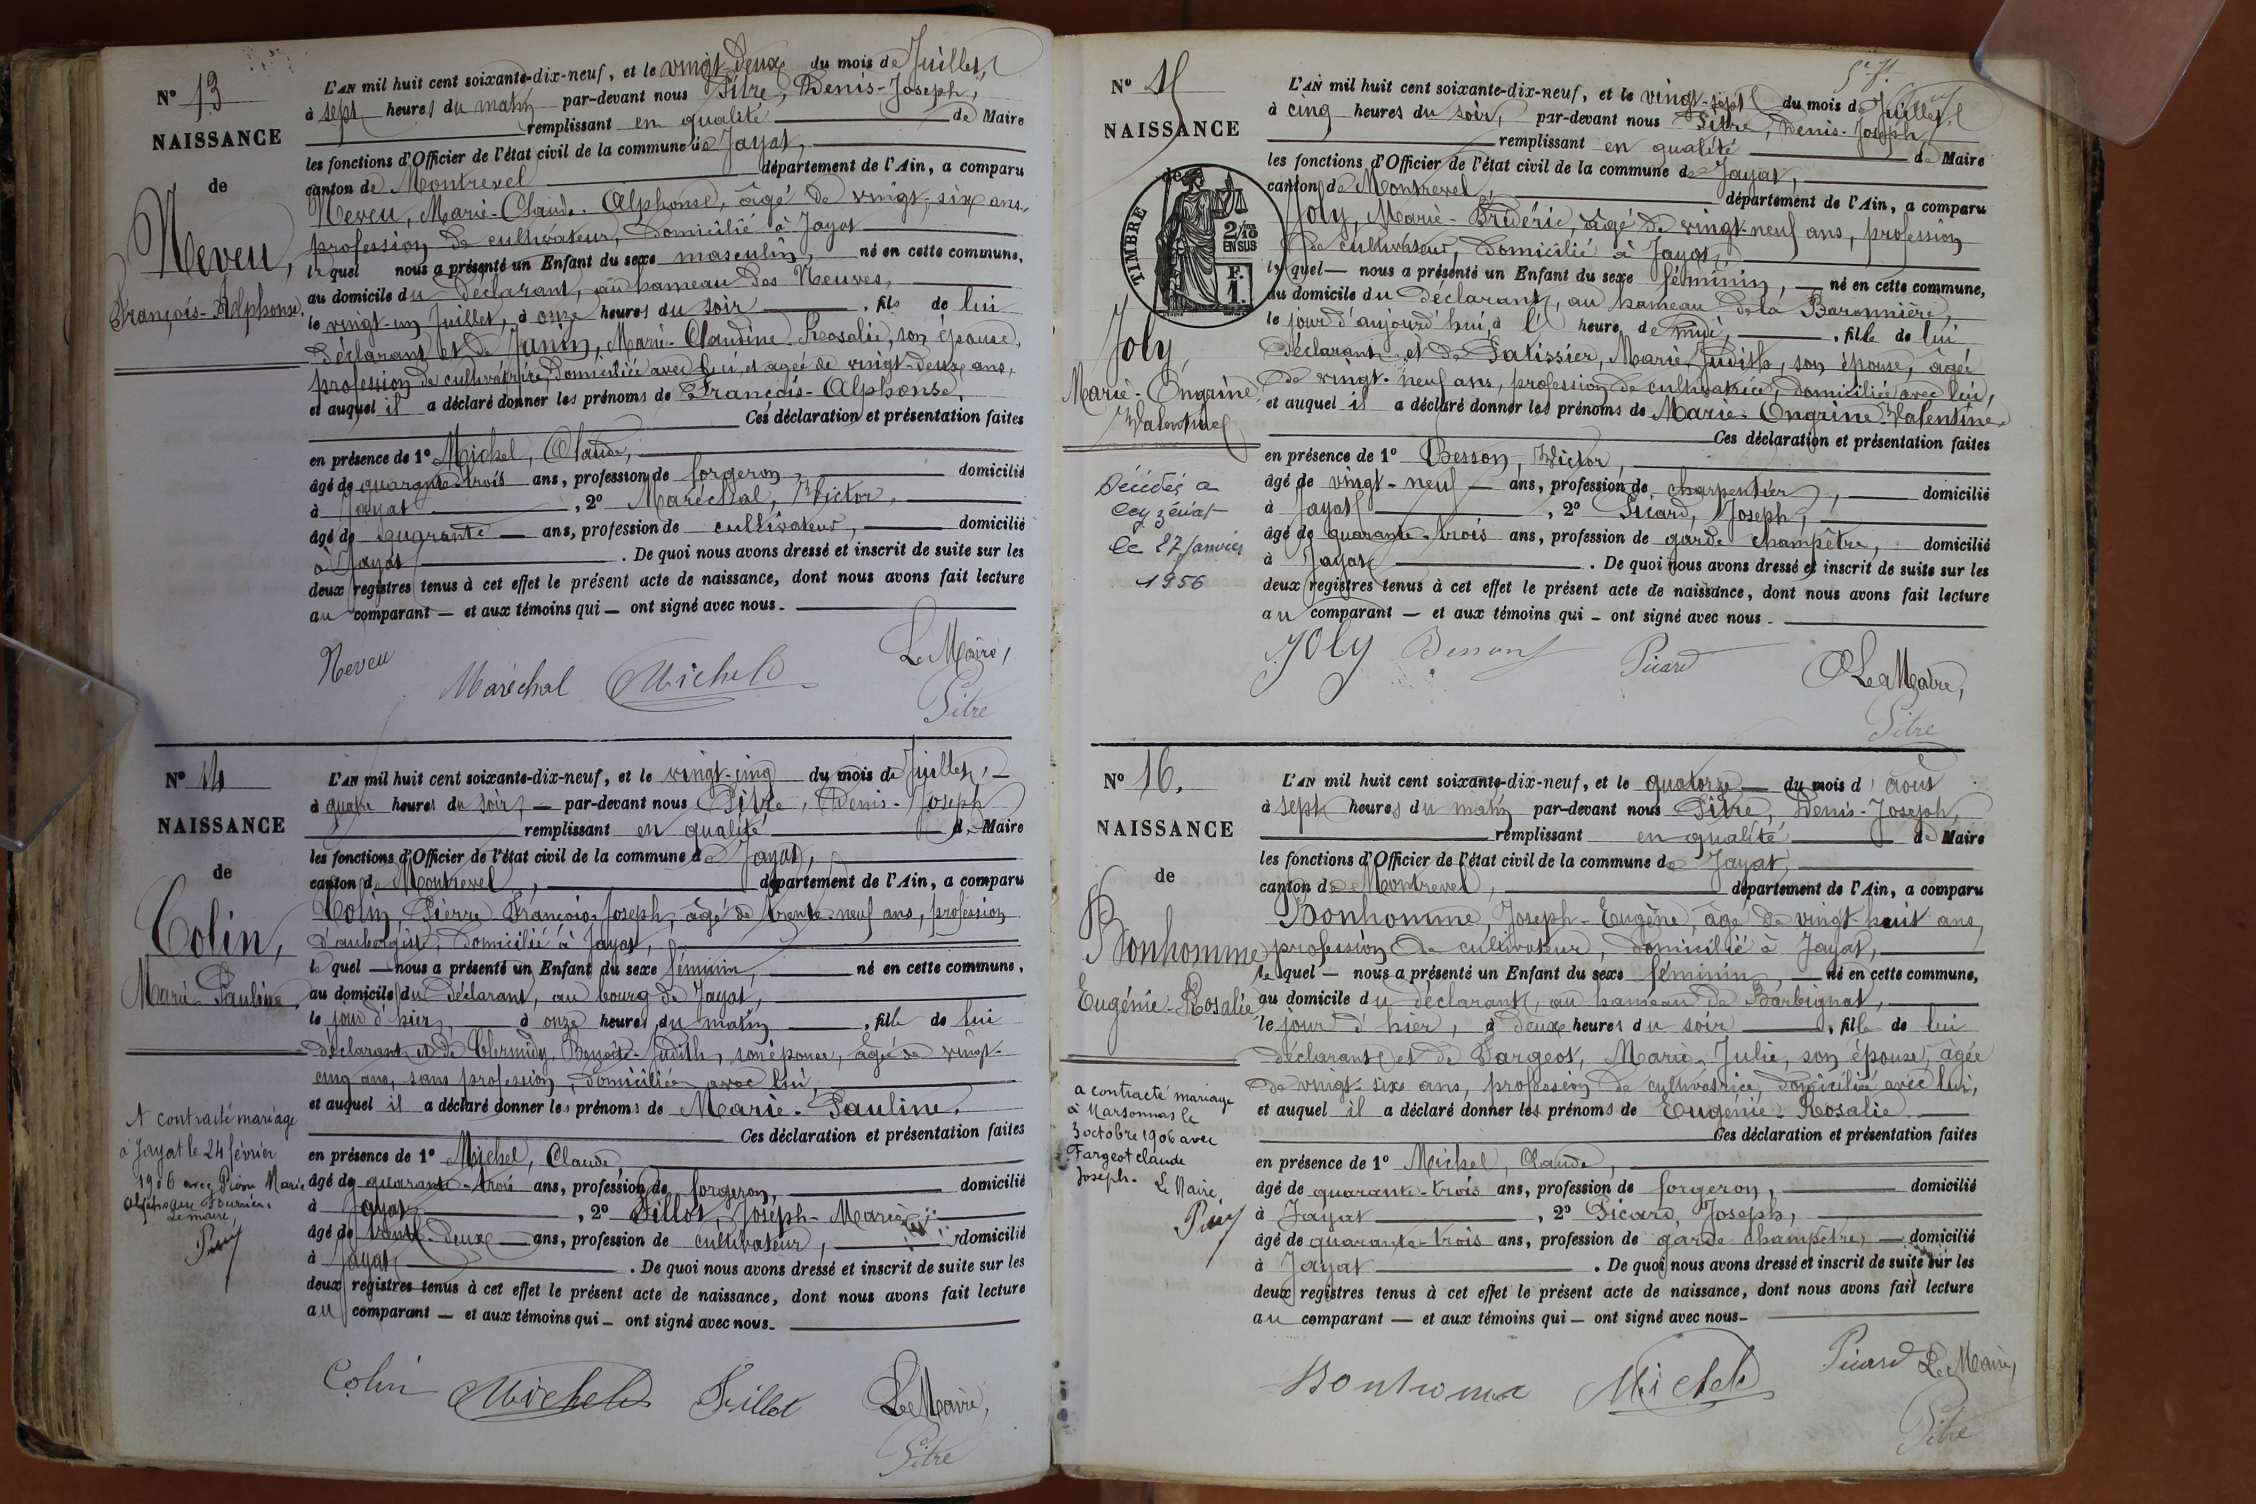 N° 13
NAISSANCE
de
Neveu,
François-Alphonse.
L'AN mil huit cent soixante-dix-neuf, et le vingt-deux du mois de Juillet,
à sept heures du matin par-devant nous Pitre, Denis-Joseph,
remplissant en qualité de Maire
les fonctions d'Officier de l'état civil de la commune de Jayat,
canton de Montrevel département de l'Ain, a comparu
Neveu, Marie-Claude-Alphonse, âgé de vingt-six ans,
profession de cultivateur, domicilié à Jayat
lequel nous a présenté un Enfant du sexe masculin, né en cette commune,
au domicile du déclarant, au hameau des Neuves,
le vingt-un Juillet, à onze heures du soir, fils de lui
déclarant et de Janin, Marie-Claudine-Rosalie, son épouse,
profession de cultivatrice, domiciliée avec lui, et agée de vingt-deux ans,
et auquel il a déclaré donner les prénoms de François-Alphonse.
Ces déclaration et présentation faites
en présence de 1° Michel, Claude,
âgé de quarante-trois ans, profession de forgeron, domicilié
à Jayat, 2° Maréchal, Victor,
âgé de quarante ans, profession de cultivateur, domicilié
à Jayat. De quoi nous avons dressé et inscrit de suite sur les
deux registres tenus à cet effet le présent acte de naissance, dont nous avons fait lecture
au comparant — et aux témoins qui — ont signé avec nous.
Neveu Maréchal Michel Le Maire,
Pitre
N° 14
NAISSANCE
de
Colin,
Marie-Pauline,
A contracté mariage
à Jayat le 24 février
1906 avec Marie
Alphonse Fournier.
Le maire,
L'AN mil huit cent soixante-dix-neuf, et le vingt-cinq du mois de Juillet,
à quatre heures du soir, — par-devant nous Pitre, Denis-Joseph
remplissant en qualité de Maire
les fonctions d'Officier de l'état civil de la commune de Jayat,
canton de Montrevel, département de l'Ain, a comparu
Colin, Pierre François Joseph, âgé de trente-neuf ans, profession
d'aubergiste, domicilié à Jayat,
lequel — nous a présenté un Enfant du sexe féminin, né en cette commune,
au domicile du déclarant, au bourg de Jayat,
le jour d'hier, à onze heures du matin, fille de lui
déclarant et de Clermidy, Benoîte-Judith, son épouse, âgée de vingt-
cinq ans, sans profession, domiciliée avec lui,
et auquel il a déclaré donner les prénoms de Marie-Pauline.
Ces déclaration et présentation faites
en présence de 1° Michel, Claude,
âgé de quarante-trois ans, profession de forgeron, domicilié
à Jayat, 2° Joseph-Marie,
âgé de trente-deux ans, profession de cultivateur, domicilié
à Jayat. De quoi nous avons dressé et inscrit de suite sur les
deux registres tenus à cet effet le présent acte de naissance, dont nous avons fait lecture
au comparant — et aux témoins qui — ont signé avec nous.
Colin Michel Le Maire,
Pitre
N° 15
NAISSANCE
de
TIMBRE
2/10 EN SUS
F. 1.
Joly,
Marie-Ongrine
Valentine
Décédée à
Ceyzériat
le 27 Janvier
1956
L'AN mil huit cent soixante-dix-neuf, et le vingt-sept du mois de Juillet,
à cinq heures du soir, par-devant nous Pitre, Denis-Joseph,
remplissant en qualité de Maire
les fonctions d'Officier de l'état civil de la commune de Jayat,
canton de Montrevel, département de l'Ain, a comparu
Joly, Marie-Frédéric, âgé de vingt-neuf ans, profession
de cultivateur, domicilié à Jayat,
lequel — nous a présenté un Enfant du sexe féminin, — né en cette commune,
au domicile du déclarant, au hameau de la Baronnière,
le jour d'aujourd'hui, à l' heure de midi, fille de lui
déclarant et de Patissier, Marie Judith, son épouse, âgée
de vingt-neuf ans, profession de cultivatrice, domiciliée avec lui,
et auquel il a déclaré donner les prénoms de Marie-Ongrine Valentine,
Ces déclaration et présentation faites
en présence de 1° Besson, Victor,
âgé de vingt-neuf — ans, profession de charpentier, domicilié
à Jayat, 2° Picard, Joseph,
âgé de quarante-trois ans, profession de garde champêtre, domicilié
à Jayat. De quoi nous avons dressé et inscrit de suite sur les
deux registres tenus à cet effet le présent acte de naissance, dont nous avons fait lecture
au comparant — et aux témoins qui — ont signé avec nous.
Joly Besson Picard Le Maire,
Pitre
N° 16.
NAISSANCE
de
Bonhomme
Eugénie-Rosalie
a contracté mariage
à Marsonnas le
3 octobre 1906 avec
Fargeot Claude
Joseph.
Le Maire,
L'AN mil huit cent soixante-dix-neuf, et le quatorze — du mois d'août
à sept heures du matin par-devant nous Pitre, Denis-Joseph,
remplissant en qualité de Maire
les fonctions d'Officier de l'état civil de la commune de Jayat
canton de Montrevel, département de l'Ain, a comparu
Bonhomme, Joseph-Eugène, âgé de vingt-huit ans,
profession de cultivateur, domicilié à Jayat,
lequel — nous a présenté un Enfant du sexe féminin, né en cette commune,
au domicile du déclarant, au hameau de Barbignat,
le jour d'hier, à deux heures du soir, fille de lui
déclarant et de Fargeot, Marie-Julie, son épouse, âgée
de vingt-six ans, profession de cultivatrice, domiciliée avec lui,
et auquel il a déclaré donner les prénoms de Eugénie-Rosalie.
Ces déclaration et présentation faites
en présence de 1° Michel, Claude,
âgé de quarante-trois ans, profession de forgeron, domicilié
à Jayat, 2° Picard, Joseph,
âgé de quarante-trois ans, profession de garde champêtre, — domicilié
à Jayat. De quoi nous avons dressé et inscrit de suite sur les
deux registres tenus à cet effet le présent acte de naissance, dont nous avons fait lecture
au comparant — et aux témoins qui — ont signé avec nous.
Bonhomme Michel Picard Le Maire,
Pitre